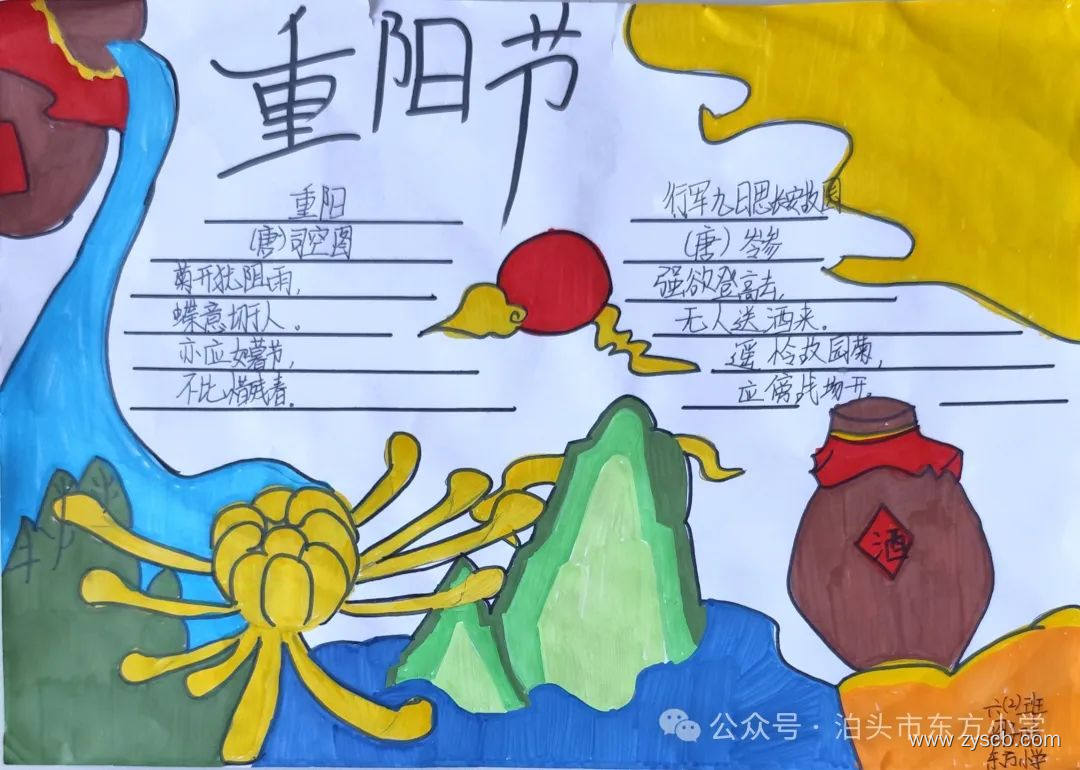 重阳节
重阳
(唐)司空图
菊开犹阻雨,
蝶意切于人。
亦应知暮节,
不比惜残春。
行军九日思长安故园
(唐) 岑参
强欲登高去,
无人送酒来。
遥怜故园菊,
应傍战场开。
酒
公众号·泊头市东方小学
六(2)班
东方小学
www.zyscb.com